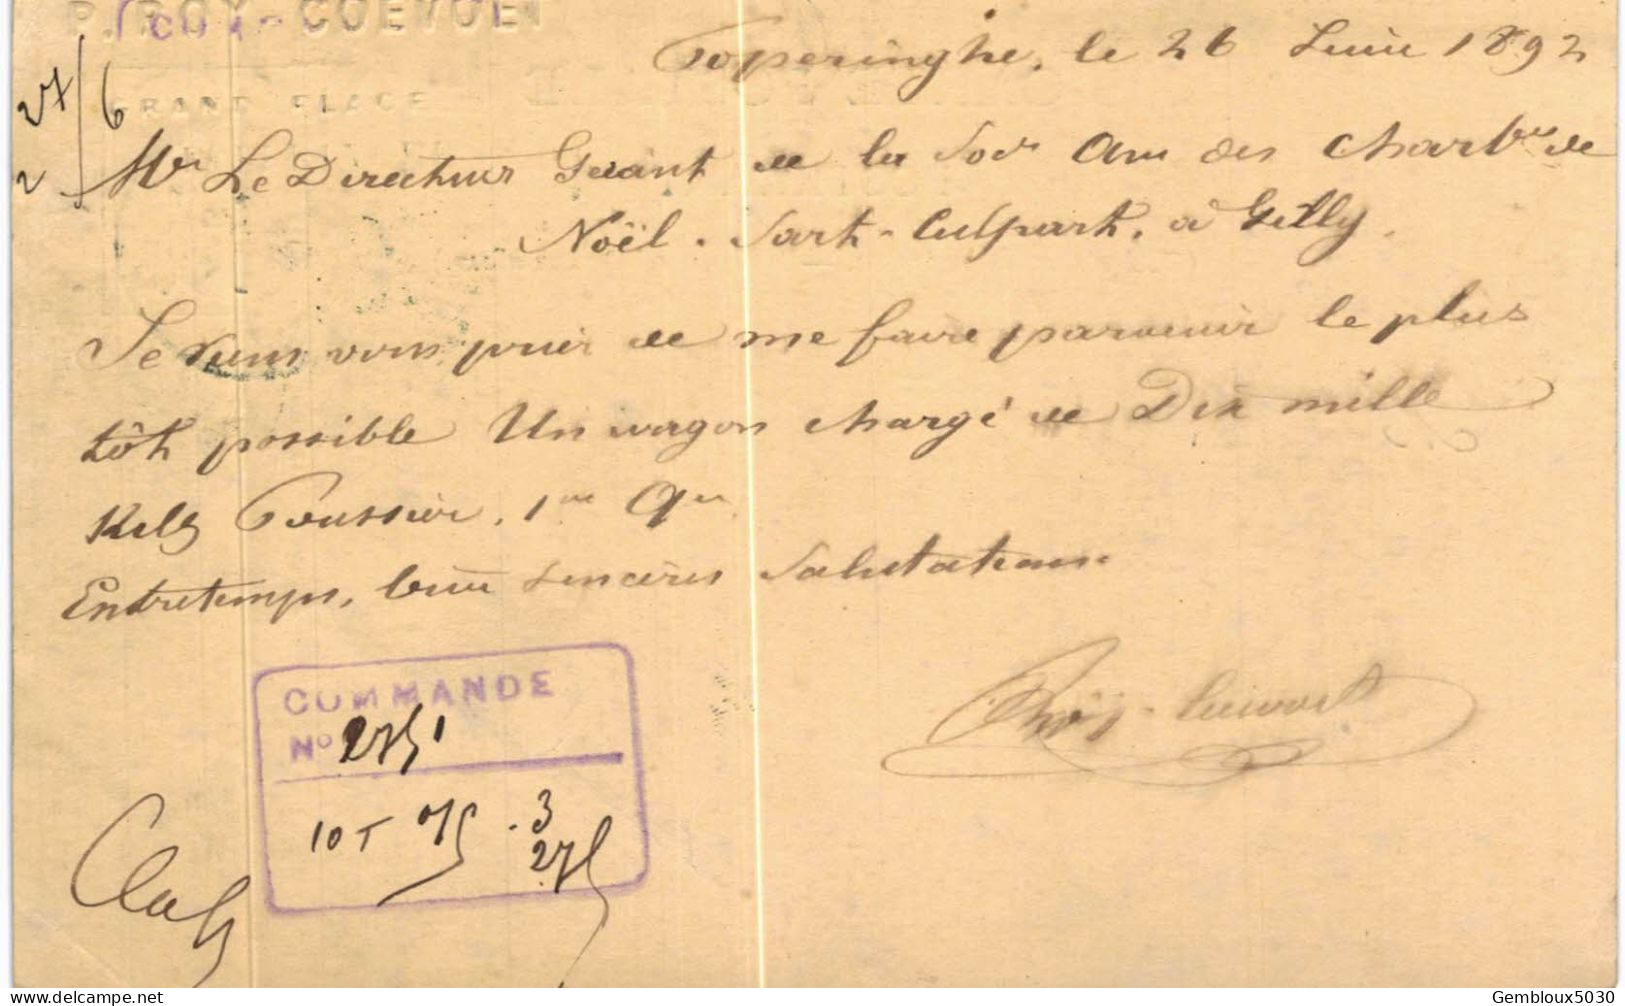 P. ROY-COEVOET
GRAND PLACE
27/6
2
Poperinghe, le 26 Juin 1892
Mr Le Directeur Gérant de la Socté Ame des Charbges de
Noël-Sart-Culpart, à Gilly.
Je viens vous prier de me faire parvenir le plus
tôt possible Un wagon chargé de Dix mille
Kilos Poussier, 1re Qté
Entretemps, bien sincères salutations
COMMANDE
No 2751
10 T
3
27
Gembloux5030